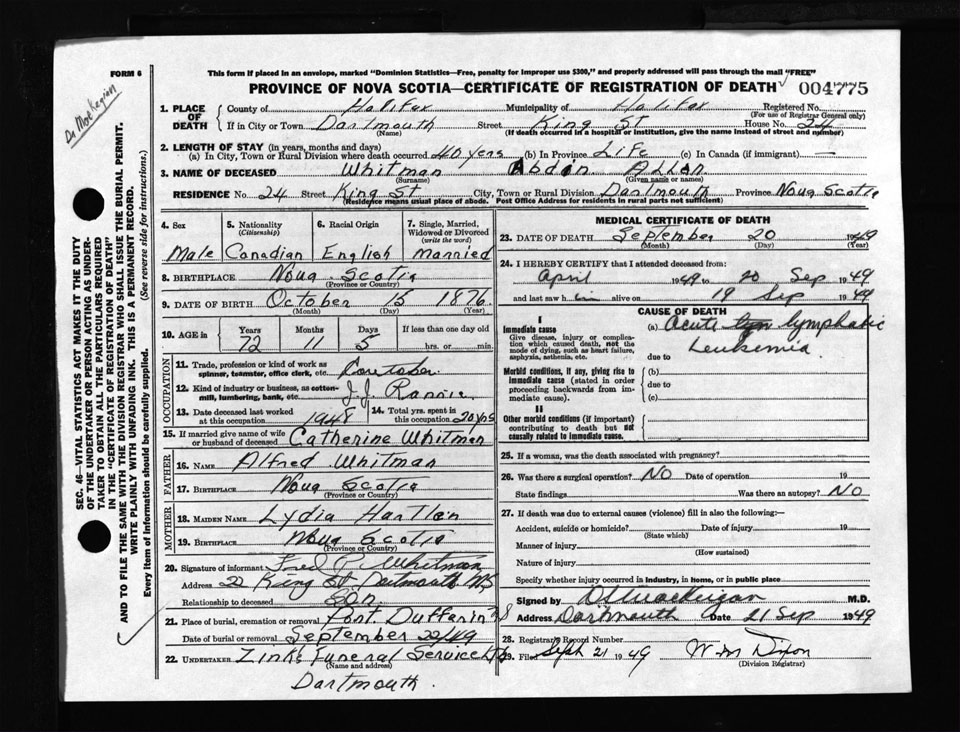 FORM 6
This form if placed in an envelope, marked "Dominion Statistics—Free, penalty for improper use $300," and properly addressed will pass through the mail "FREE"
PROVINCE OF NOVA SCOTIA—CERTIFICATE OF REGISTRATION OF DEATH 004775
1. PLACE OF DEATH
County of Halifax Municipality of Halifax Registered No.
(For use of Registrar General only)
If in City or Town Dartmouth Street King St House No. 24
(Name) (If death occurred in a hospital or institution, give the name instead of street and number)
2. LENGTH OF STAY (in years, months and days)
(a) In City, Town or Rural Division where death occurred 40 yers (b) In Province Life (c) In Canada (if immigrant) —
3. NAME OF DECEASED Whitman Abdon Allan
(Surname) (Given name or names)
RESIDENCE No. 24 Street King St City, Town or Rural Division Dartmouth Province Nova Scotia
(Residence means usual place of abode. Post Office Address for residents in rural parts not sufficient)
4. Sex 5. Nationality (Citizenship) 6. Racial Origin 7. Single, Married, Widowed or Divorced (write the word)
Male Canadian English Married
8. BIRTHPLACE Nova Scotia
(Province or Country)
9. DATE OF BIRTH October 15 1876
(Month) (Day) (Year)
10. AGE in Years Months Days If less than one day old
72 11 5 hrs. or min.
OCCUPATION
11. Trade, profession or kind of work as spinner, teamster, office clerk, etc.
12. Kind of industry or business, as cotton-mill, lumbering, bank, etc. J.J. Rannie
13. Date deceased last worked at this occupation 1948 14. Total yrs. spent in this occupation 20 yrs
15. If married give name of wife or husband of deceased Catherine Whitman
FATHER
16. NAME Alfred Whitman
17. BIRTHPLACE Nova Scotia
(Province or Country)
MOTHER
18. MAIDEN NAME Lydia Hartlen
19. BIRTHPLACE Nova Scotia
(Province or Country)
20. Signature of informant Fred P. Whitman
Address 22 King St Dartmouth N.S
Relationship to deceased Son
21. Place of burial, cremation or removal Port Dufferin N S
Date of burial or removal September 22/49
22. UNDERTAKER Zinks Funeral Service Ltd
(Name and address)
Dartmouth.
MEDICAL CERTIFICATE OF DEATH
23. DATE OF DEATH September 20 1949
(Month) (Day) (Year)
24. I HEREBY CERTIFY that I attended deceased from:
April 1949 to 20 Sep 1949
and last saw him alive on 19 Sep 1949
CAUSE OF DEATH
I
Immediate cause (a) Acute lymphatic
Give disease, injury or complication which caused death, not the mode of dying, such as heart failure, asphyxia, asthenia, etc.
due to Leukemia
Morbid conditions, if any, giving rise to immediate cause (stated in order proceeding backwards from immediate cause).
(b)
due to
(c)
II
Other morbid conditions (if important) contributing to death but not causally related to immediate cause.
25. If a woman, was the death associated with pregnancy?
26. Was there a surgical operation? NO Date of operation 19
State findings Was there an autopsy? NO
27. If death was due to external causes (violence) fill in also the following:—
Accident, suicide or homicide? Date of injury 19
(State which)
Manner of injury
(How sustained)
Nature of injury
Specify whether injury occurred in industry, in home, or in public place
Signed by M.D.
Address Dartmouth Date 21 Sep 1949
28. Registrar's Record Number
29. Filed Sept 21 1949 W. M. Dixon
(Division Registrar)
SEC. 46—VITAL STATISTICS ACT MAKES IT THE DUTY
OF THE UNDERTAKER OR PERSON ACTING AS UNDER-
TAKER TO OBTAIN ALL THE PARTICULARS REQUIRED
IN THE "CERTIFICATE OF REGISTRATION OF DEATH"
AND TO FILE THE SAME WITH THE DIVISION REGISTRAR WHO SHALL ISSUE THE BURIAL PERMIT.
WRITE PLAINLY WITH UNFADING INK. THIS IS A PERMANENT RECORD.
Every item of information should be carefully supplied. (See reverse side for instructions.)